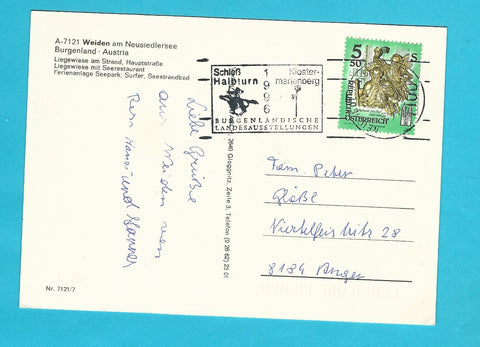 A-7121 Weiden am Neusiedlersee
Burgenland · Austria
Liegewiese am Strand, Hauptstraße
Liegewiese mit Seerestaurant
Ferienanlage Seepark, Surfer, Seestrandbad
Liebe Grüße
aus Weiden
und Hanni
Nr. 7121/7
2640 Gloggnitz, Zeile 3, Telefon (0 26 62) 23 01
Schloß
Halbturn
1996
Kloster-
marienberg
BURGENLÄNDISCHE
LANDESAUSSTELLUNGEN
5 50
5
REPUBLIK
ÖSTERREICH
Fam. Peter
28
8184 Anger